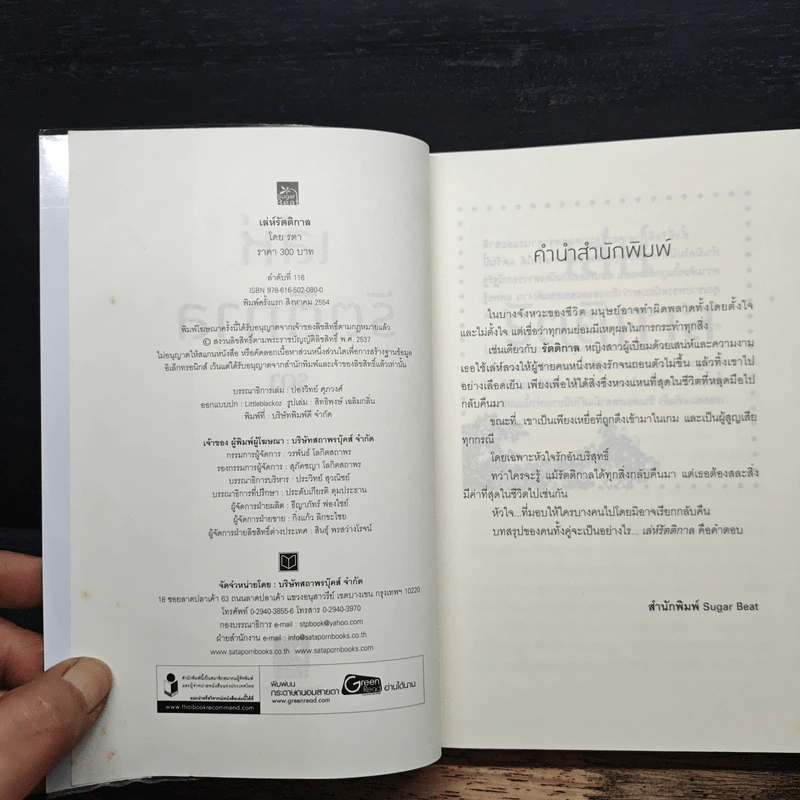 Sugar Beat
เล่ห์รัตติกาล
โดย รตา
ราคา 300 บาท
ลำดับที่ 116
ISBN 978-616-502-080-0
พิมพ์ครั้งแรก สิงหาคม 2554
พิมพ์โฆษณาครั้งนี้ได้รับอนุญาตจากเจ้าของลิขสิทธิ์ตามกฎหมายแล้ว
© สงวนลิขสิทธิ์ตามพระราชบัญญัติลิขสิทธิ์ พ.ศ. 2537
ไม่อนุญาตให้สแกนหนังสือ หรือคัดลอกเนื้อหาส่วนหนึ่งส่วนใดเพื่อการสร้างฐานข้อมูล
อิเล็กทรอนิกส์ เว้นแต่ได้รับอนุญาตจากสำนักพิมพ์และเจ้าของลิขสิทธิ์แล้วเท่านั้น
บรรณาธิการเล่ม : ปองวิทย์ ศุภวงศ์
ออกแบบปก : Littleblackoz รูปเล่ม : สิทธิพงษ์ เฉลิมกลิ่น
พิมพ์ที่ : บริษัทพิมพ์ดี จำกัด
เจ้าของ ผู้พิมพ์ผู้โฆษณา : บริษัทสถาพรบุ๊คส์ จำกัด
กรรมการผู้จัดการ : วรพันธ์ โลกิตสถาพร
รองกรรมการผู้จัดการ : สุภัคชญา โลกิตสถาพร
บรรณาธิการบริหาร : ประวิทย์ สุวณิชย์
บรรณาธิการที่ปรึกษา : ประดับเกียรติ ตุมประธาน
ผู้จัดการฝ่ายผลิต : ธีญาภัทร์ ฟองไชย์
ผู้จัดการฝ่ายขาย : กิ่งแก้ว ลิกขะไชย
ผู้จัดการฝ่ายลิขสิทธิ์ต่างประเทศ : สินธุ์ พรสว่างโรจน์
จัดจำหน่ายโดย : บริษัทสถาพรบุ๊คส์ จำกัด
18 ซอยลาดปลาเค้า 63 ถนนลาดปลาเค้า แขวงอนุสาวรีย์ เขตบางเขน กรุงเทพฯ 10220
โทรศัพท์ 0-2940-3855-6 โทรสาร 0-2940-3970
กองบรรณาธิการ e-mail : stpbook@yahoo.com
ฝ่ายสำนักงาน e-mail : info@satapornbooks.co.th
www.satapornbooks.co.th www.satapornbooks.com
สำนักพิมพ์นี้เป็นสมาชิกสมาคมผู้จัดพิมพ์
และผู้จำหน่ายหนังสือแห่งประเทศไทย
แนะนำหรือวิจารณ์หนังสือเล่มนี้ได้ที่
www.thaibookrecommend.com
พิมพ์บน
กระดาษถนอมสายตา Green Read อ่านได้นาน
www.greenread.com
คำนำสำนักพิมพ์
ในบางจังหวะของชีวิต มนุษย์อาจทำผิดพลาดทั้งโดยตั้งใจ
และไม่ตั้งใจ แต่เชื่อว่าทุกคนย่อมมีเหตุผลในการกระทำทุกสิ่ง
เช่นเดียวกับ รัตติกาล หญิงสาวผู้เปี่ยมด้วยเสน่ห์และความงาม
เธอใช้เล่ห์ลวงให้ผู้ชายคนหนึ่งหลงรักจนถอนตัวไม่ขึ้น แล้วทิ้งเขาไป
อย่างเลือดเย็น เพียงเพื่อให้ได้สิ่งซึ่งหวงแหนที่สุดในชีวิตที่หลุดมือไป
กลับคืนมา
ขณะที่...เขาเป็นเพียงเหยื่อที่ถูกดึงเข้ามาในเกม และเป็นผู้สูญเสีย
ทุกกรณี
โดยเฉพาะหัวใจรักอันบริสุทธิ์
ทว่าใครจะรู้ แม้รัตติกาลได้ทุกสิ่งกลับคืนมา แต่เธอต้องสละสิ่ง
มีค่าที่สุดในชีวิตไปเช่นกัน
หัวใจ...ที่มอบให้ใครบางคนไปโดยมิอาจเรียกกลับคืน
บทสรุปของคนทั้งคู่จะเป็นอย่างไร... เล่ห์รัตติกาล คือคำตอบ
สำนักพิมพ์ Sugar Beat